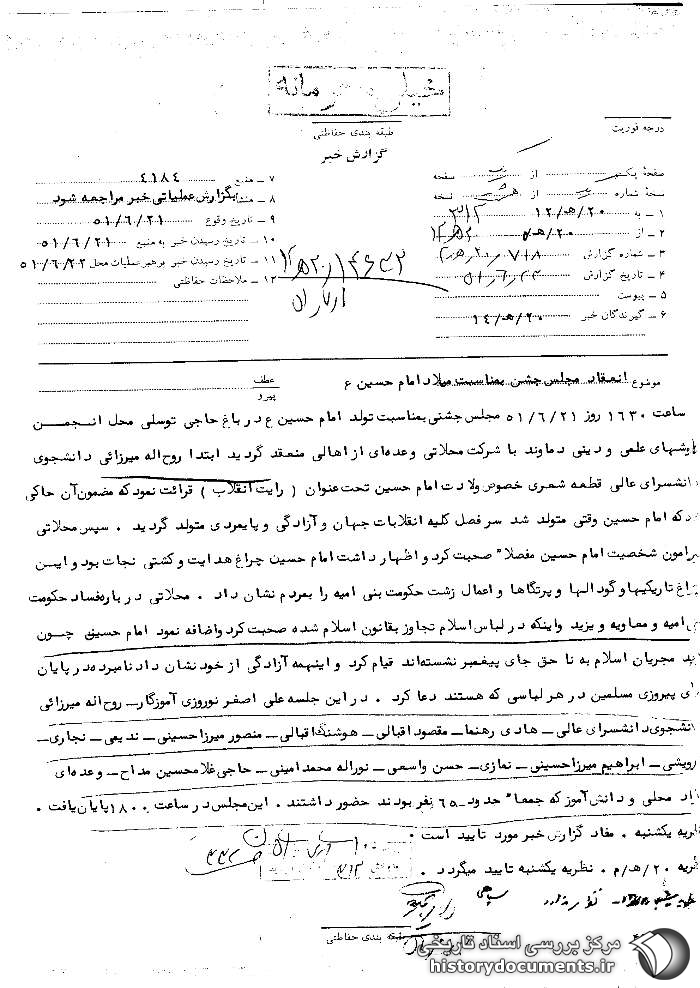 خیلی محرمانه
طبقه بندی حفاظتی
گزارش خبر
درجه فوریت
صفحهٔ یک از صفحه
نسخهٔ شماره از نسخه
۱ ـ به ۲۰/ه‍/۱۲ ۳۱۲
۲ ـ از ۲۰/ه‍
۳ ـ شماره گزارش
۴ ـ تاریخ گزارش
۵ ـ پیوست
۶ ـ گیرندگان خبر ۲۰/ه‍/۱۴
۷ ـ منبع ۴۱۸۴
۸ ـ بگزارش عملیاتی خبر مراجعه شود
۹ ـ تاریخ وقوع ۵۱/۶/۲۱
۱۰ ـ تاریخ رسیدن خبر به منبع ۵۱/۶/۲۱
۱۱ ـ تاریخ رسیدن خبر برهبر عملیات محل ۵۱/۶/۲۲
۱۲ ـ ملاحظات حفاظتی
موضوع انعقاد مجلس جشن بمناسبت میلاد امام حسین ع
عطف
پیرو
ساعت ۱۶۳۰ روز ۵۱/۶/۲۱ مجلس جشنی بمناسبت تولد امام حسین ع در باغ حاجی توسلی محل انجمن
های علمی و دینی دماوند با شرکت محلاتی وعده‌ای از اهالی منعقد گردید ابتدا روح اله میرزائی دانشجوی
دانشسرای عالی قطعه شعری خصوص ولادت امام حسین تحت عنوان ( رایت انقلاب ) قرائت نمود که مضمون آن حاکی
که امام حسین وقتی متولد شد سر فصل کلیه انقلابات جهان و آزادگی و پایمردی متولد گردید . سپس محلاتی
پیرامون شخصیت امام حسین مفصلا" صحبت کرد و اظهار داشت امام حسین چراغ هدایت و کشتی نجات بود و ایــن
چراغ تاریکیها و گودالها و پرتگاها و اعمال زشت حکومت بنی امیه را بمردم نشان داد . محلاتی درباره فساد حکومت
بنی امیه و معاویه و یزید و اینکه در لباس اسلام تجاوز بقانون اسلام شده صحبت کرد و اضافه نمود امام حسین چــون
دید مجریان اسلام به نا حق جای پیغمبر نشسته‌اند قیام کرد و اینهمه آزادگی از خود نشان داد نامبرده در پایان
برای پیروزی مسلمین در هر لباسی که هستند دعا کرد . در این جلسه علی اصغر نوروزی آموزگار ـ روح اله میرزائی
دانشجوی دانشسرای عالی ـ هادی رهنما ـ مقصود اقبالی ـ هوشنگ اقبالی ـ منصور میرزاحسینی ـ ندیعی ـ نجاری ـ
درویشی ـ ابراهیم میرزاحسینی ـ نعازی ـ حسن واسعی ـ نوراله محمد امینی ـ حاجی غلامحسین مداح ـ وعده‌ای
محلی و دانش آموز که جمعا" حدود ۶۵ نفر بودند حضور داشتند . این مجلس در ساعت ۱۸۰۰ پایان یافت .
نظریه یکشنبه . مفاد گزارش خبر مورد تایید است .
نظریه ۲۰/ه‍/م . نظریه یکشنبه تایید میگردد .
طبقه بندی حفاظتی
مرکز بررسی اسناد تاریخی
historydocuments.ir